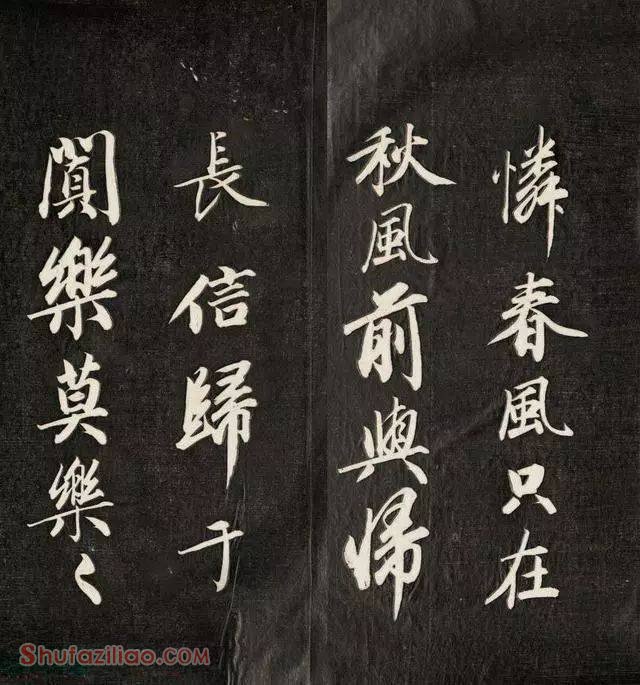 憐春風只在
秋風前與歸
長信歸于
闐樂莫樂〻
Shufaziliao.COM